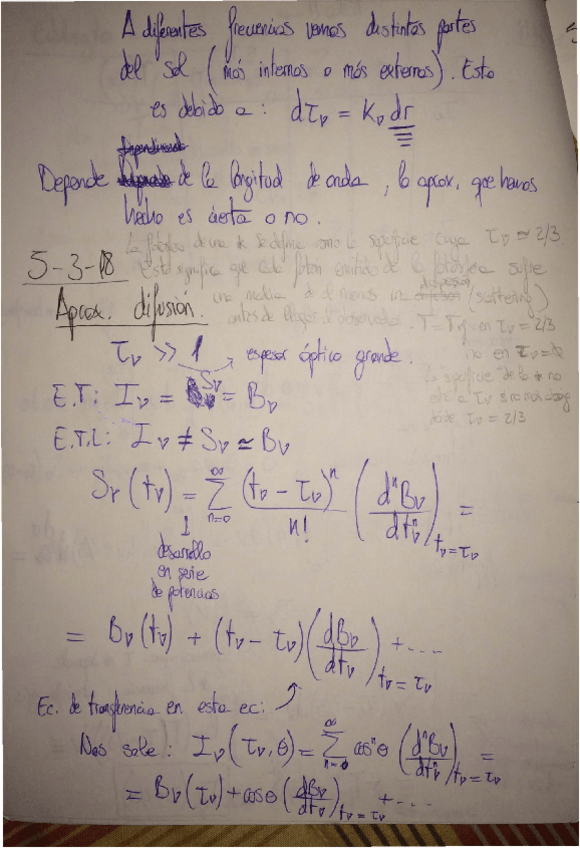 A diferentes frecuencias vemos distintas partes
del sol (más internos o más externos). Esto
es debido a: dτ_ν = K_ν dr
Depende de la longitud de onda, la aprox. que hemos
hecho es cierta o no.
La fotosfera de una se define como la superficie cuya τ_ν ≃ 2/3.
5-3-18
Esto significa que cada fotón emitido de la fotosfera sufre
una media de al menos una (scattering)
Aprox. difusión.
antes de llegar al observador. T = T_ef en τ_ν = 2/3
τ_ν >> 1 → espesor óptico grande.
no en τ_ν = 0
E.T: I_ν = S_ν = B_ν
la superficie de la no
está a τ_ν
τ_ν = 2/3
E.T.L: I_ν ≠ S_ν ≃ B_ν
S_ν(t_ν) = Σ_{n=0}^{∞} (t_ν - τ_ν)^n / n! (d^n B_ν / dt_ν^n)_{t_ν = τ_ν} =
desarrollo
en serie
de potencias
= B_ν(t_ν) + (t_ν - τ_ν) (dB_ν / dt_ν)_{t_ν = τ_ν} + ....
Ec. de transferencia en esta ec:
Nos sale: I_ν(τ_ν, θ) = Σ_{n=0}^{∞} cos^n θ (d^n B_ν / dt_ν^n)_{t_ν = τ_ν} =
= B_ν(τ_ν) + cos θ (dB_ν / dt_ν)_{t_ν = τ_ν} + ....